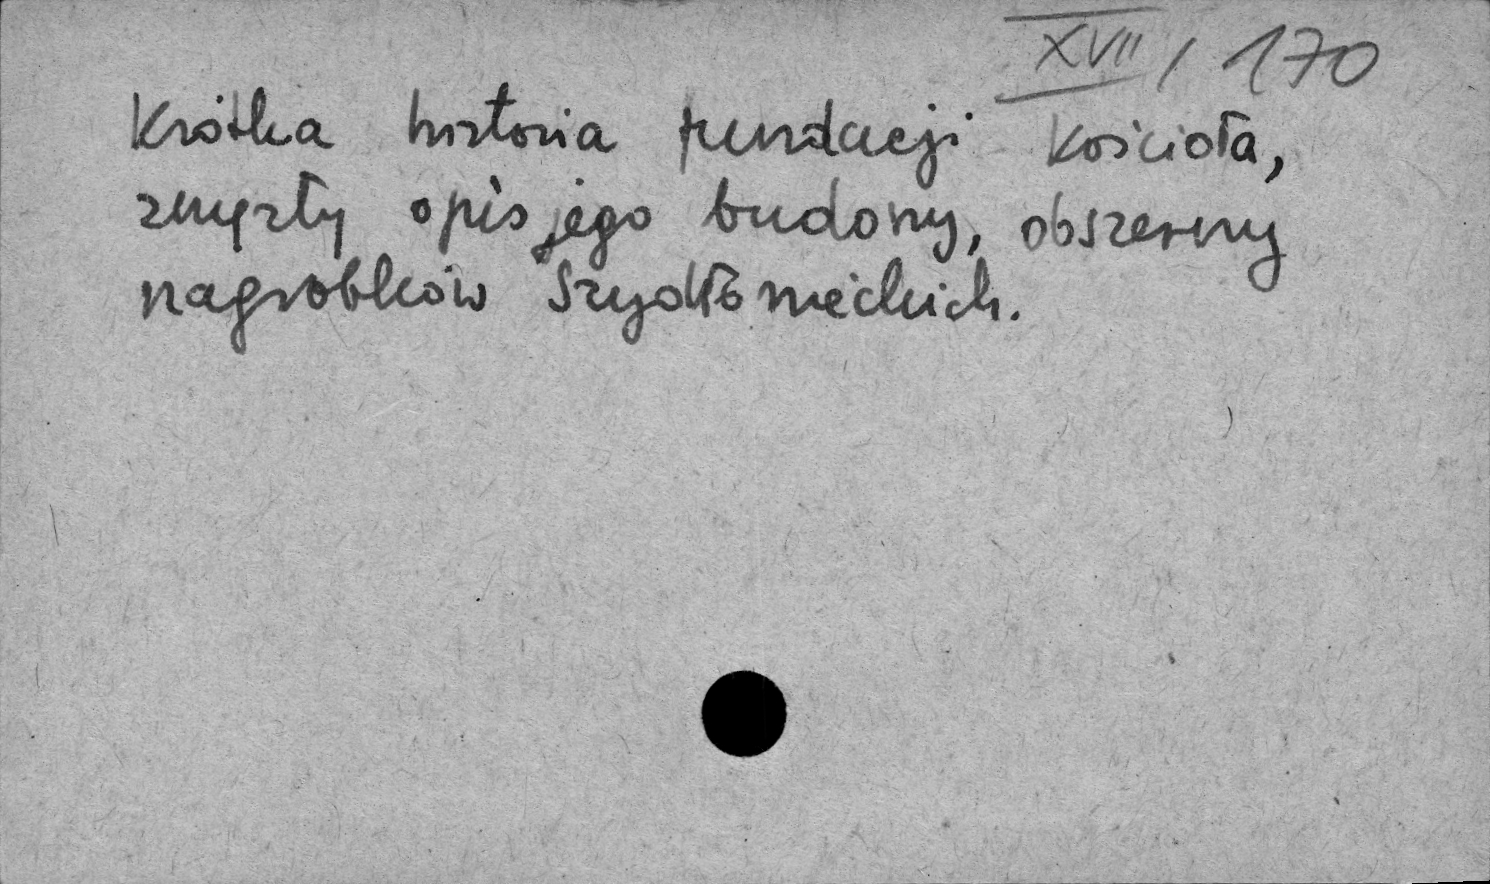 XVII / 170
Krótka historia fundacji kościoła,
zwięzły opis jego budowy, obszerny
nagrobków Szydłowieckich.